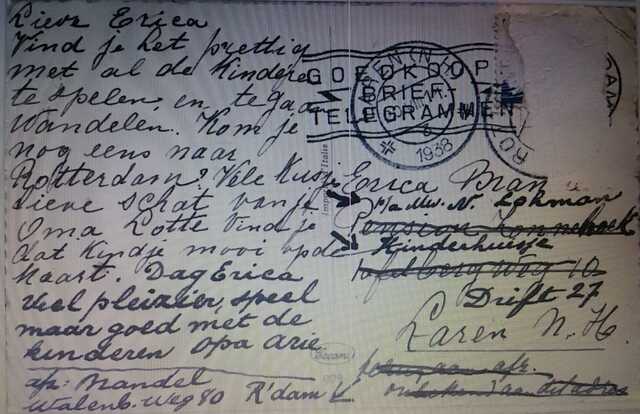 Lieve Erica
Vind je het prettig
met al de Kindere
te spelen, en te gaa
Wandelen. Kom je
nog eens naar
Rotterdam? Vele Kusje
Lieve schat van je
Oma Lotte Vind je
dat Kindje mooi op de
Kaart. Dag Erica
Veel pleizier, speel
maar goed met de
kinderen opa Arie
afz: Brandel
Walenb. Weg 80 R'dam
GOEDKOOP
BRIEF-
TELEGRAMMEN
1938
RO
DAM
Italie
Erica Bran
p/a Mw. N. Lohman
Pension Zonnehoek
Kinderhuisje
10
Drift 27
Laren N.H.
onbekend aan dit adres